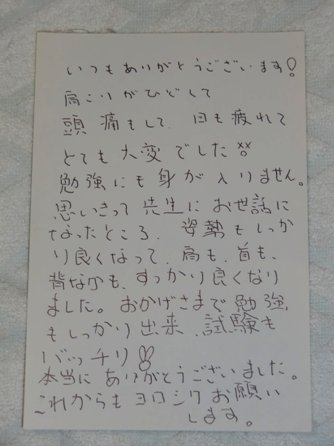 いつもありがとうございます!
肩こりがひどくて
頭痛もして、目も疲れて
とても大変でした
勉強にも身が入りません。
思いきって先生にお世話に
なったところ、姿勢もしっか
り良くなって、肩も、首も、
背なかも、すっかり良くなり
ました。おかげさまで勉強
もしっかり出来、試験も
バッチリ
本当にありがとうございました。
これからもヨロシクお願い
します。